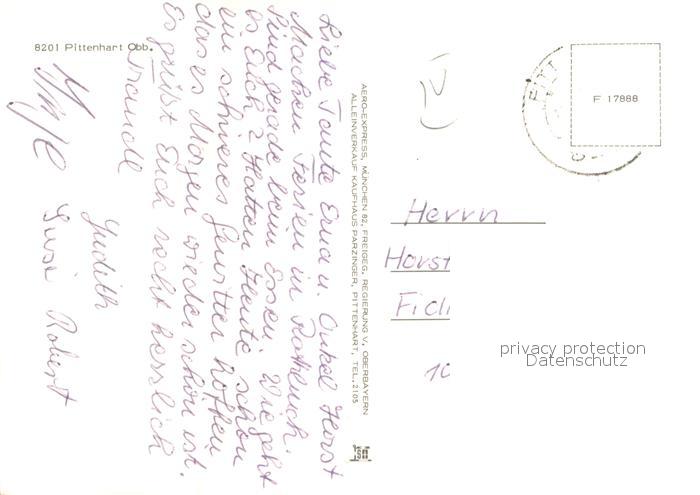 8201 Pittenhart Obb.
Liebe Tante Erna u. Onkel Horst
Machen Ferien in
Sind gerade beim Essen. Wie geht
es Euch? Hatten Heute schon
ein schweres Gewitter hoffen
das es Morgen wieder schön ist.
Es grüßt Euch recht herzlich
Traudl
Judith
Susi Robert
AERO-EXPRESS, MÜNCHEN 82, FREIGEG. REGIERUNG V. OBERBAYERN
ALLEINVERKAUF KAUFHAUS PARZINGER, PITTENHART, TEL. 2105
F 17888
PITT
Herrn
Horst
10
privacy protection
Datenschutz